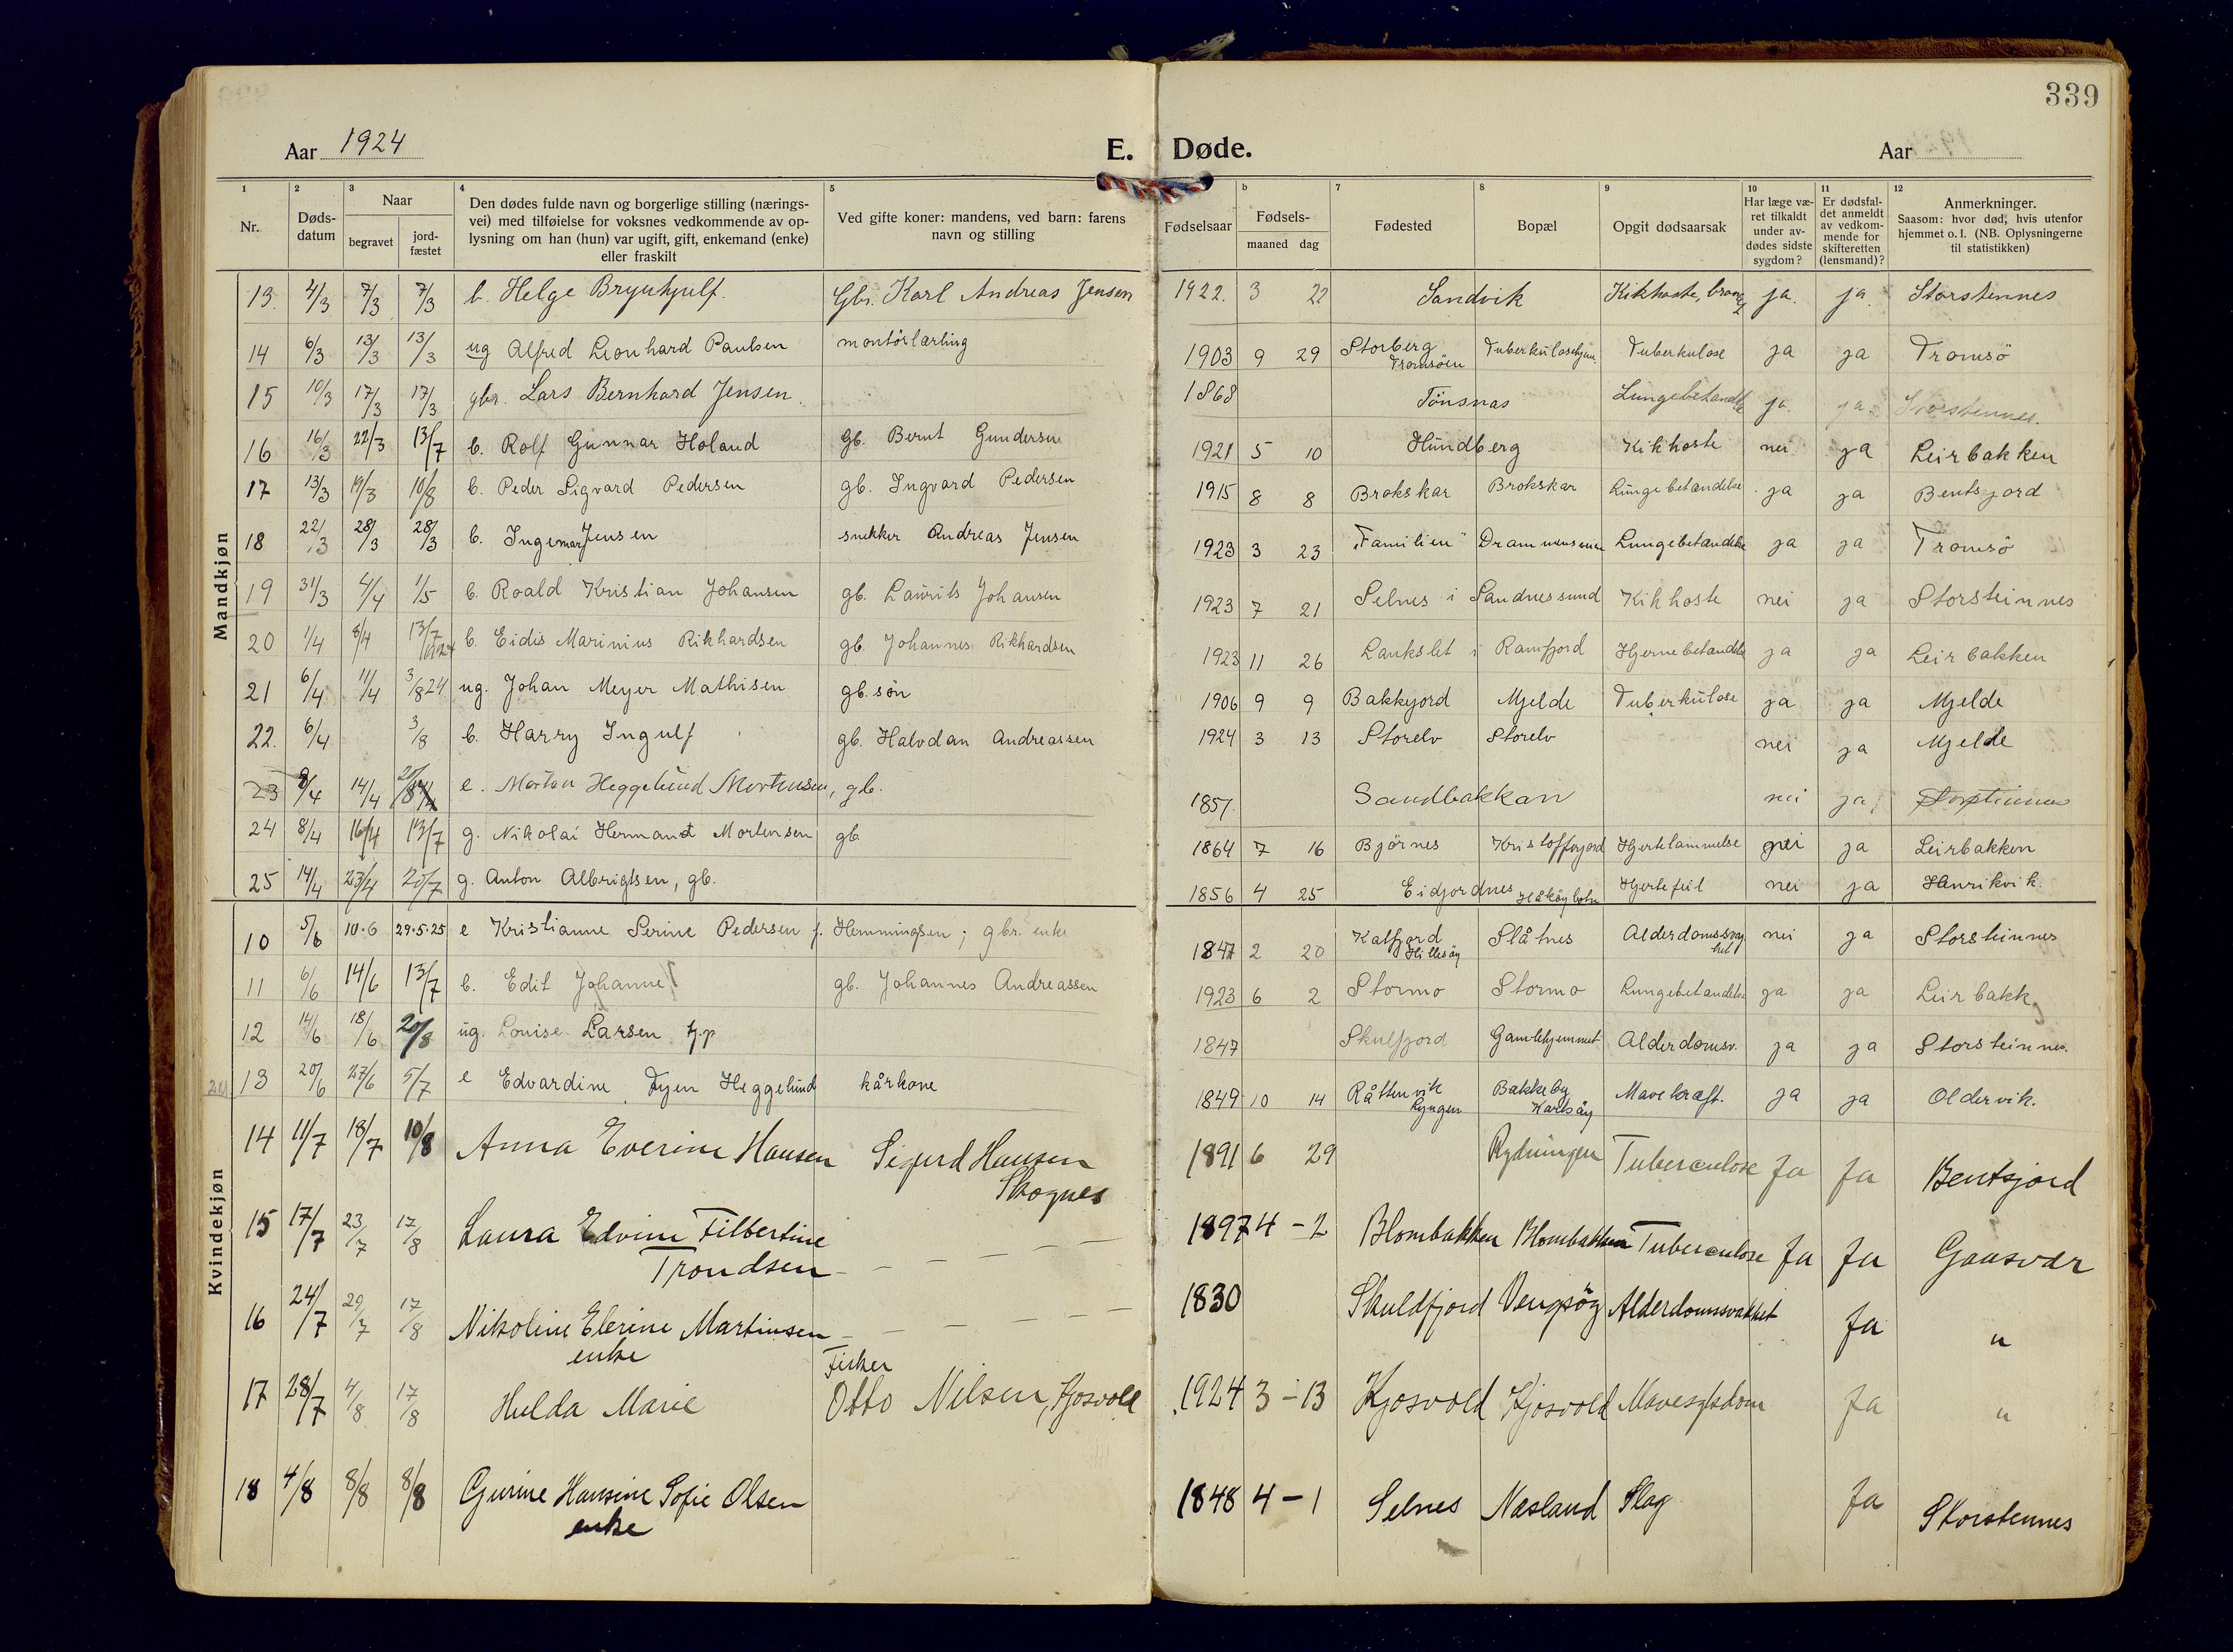 339
Aar 1924 E. Døde. Aar
1 2 3 4 5 6 7 8 9 10 11 12
Nr.
Døds-
datum
Naar
begravet
jord-
fæstet
Den dødes fulde navn og borgerlige stilling (nærings-
vei) med tilføielse for voksnes vedkommende av op-
lysning om han (hun) var ugift, gift, enkemand (enke)
eller fraskilt
Ved gifte koner: mandens, ved barn: farens
navn og stilling
Fødselsaar
Fødsels-
maaned dag
Fødested
Bopæl
Opgit dødsaarsak
Har læge væ-
ret tilkaldt
under av-
dødes sidste
sygdom?
Er dødsfal-
det anmeldt
av vedkom-
mende for
skifteretten
(lensmand)?
Anmerkninger.
Saasom: hvor død, hvis utenfor
hjemmet o. l. (NB. Oplysningerne
til statistikken)
Mandkjøn
13. 4/3 7/3 7/3 b. Helge Brynhjulf. Gbr. Karl Andreas Jensen 1922. 3 22 Sandvik Kikhoste, ja. ja. Storstennes
14 6/3 13/3 13/3 ug Alfred Leonhard Paulsen montörlærling 1903 9 29 Storberg Tromsöen Tuberkulosehjem Tuberkulose ja ja Tromsö
15 10/3 17/3 17/3 gbr. Lars Bernhard Jensen. 1868 Tönsnas Lungebetændelse ja. ja. Storstennes.
16 16/3 22/3 13/7 b. Rolf Gunnar Holand gb. Bernt Gundersen 1921 5 10 Hundberg Kikhoste nei ja Leirbakken
17 13/3 19/3 10/8 b. Peder Sigvard Pedersen gb. Ingvard Pedersen 1915 8 8 Brokskar Brokskar Lungebetændelse ja ja Bentsjord
18 22/3 28/3 28/3 b. Ingemar Jensen snekker Andreas Jensen 1923 3 23 "Familien" Lungebetændelse ja ja Tromsö
19 31/3 4/4 1/5 b. Roald Kristian Johansen gb. Laurits Johansen 1923 7 21 Selnes i Sandnessund Kikhoste nei ja Storsteinnes
20 1/4 8/4 13/7 b. Eidis Marinius Rikhardsen gb. Johannes Rikhardsen 1923 11 26 Lankslet i Ramfjord Hjernebetændelse ja ja Leirbakken
21 6/4 11/4 3/8 24 ug. Johan Meyer Mathisen gb. sön 1906 9 9 Bakkejord Mjelde Tuberkulose ja ja Mjelde
22. 6/4 3/8 b. Harry Ingulf gb. Halvdan Andreassen 1924 3 13 Storelv Storelv nei ja Mjelde
23 9/4 14/4 e. Morten Heggelund Mortensen, gb. 1857. Sandbakkan nei ja
24 8/4 16/4 13/7 g. Nikolai Hermand Mortensen gb 1864 7 16 Björnes Kristofferjord Hjertelammelse nei ja Leirbakken
25 14/4 23/4 20/7 g. Anton Albrigtsen, gb. 1856 4 25 Eidjordnes Håköybotn Hjertefeil nei ja Henrikvik.
Kvindekjøn
10 5/6 10.6 29.5.25 e Kristianne Serine Pedersen f. Hemmingsen; gbr. enke 1847 2 20 Kalfjord Hillesöy Slåtnes Alderdomssvaghet nei ja Storsteinnes
11 6/6 14/6 13/7 b. Edit Johanne gb. Johannes Andreassen 1923 6 2 Stormo Stormo Lungebetændelse ja ja Leirbakk
12 14/6 18/6 20/8 ug. Louise Larsen fp. 1847 Skulfjord Gamlehjemmet Alderdomsv. ja ja Storsteinnes.
13 20/6 27/6 5/7 e Edvardine Fyen Heggelund kårkone 1849 10 14 Råttenvik Lyngen Bakkeby Karlsöy Mavekræft. ja ja Oldervik.
14 11/7 18/7 10/8 Anna Everine Hansen Sigurd Hansen Skognes 1891 6 29 Rydningen Tuberculose Ja Ja Bentsjord
15 17/7 23/7 17/8 Laura Edvine Filbertine Trondsen 1897 4 - 2 Blombakken Blombakken Tuberculose Ja Ja Gaasvær
16 24/7 29/7 17/8 Nikoline Elerine Martinsen enke 1830 Skuldfjord Vengsöy Alderdomssvakhet Ja "
17 28/7 4/8 17/8 Hulda Marie Fisker Otto Nilsen, Kjosvold 1924 3 - 13 Kjosvold Kjosvold Mavesygdom Ja "
18 4/8 8/8 8/8 Gjurine Hansine Sofie Olsen enke 1848 4 - 1 Selnes Næsland Slag Ja Storstennes